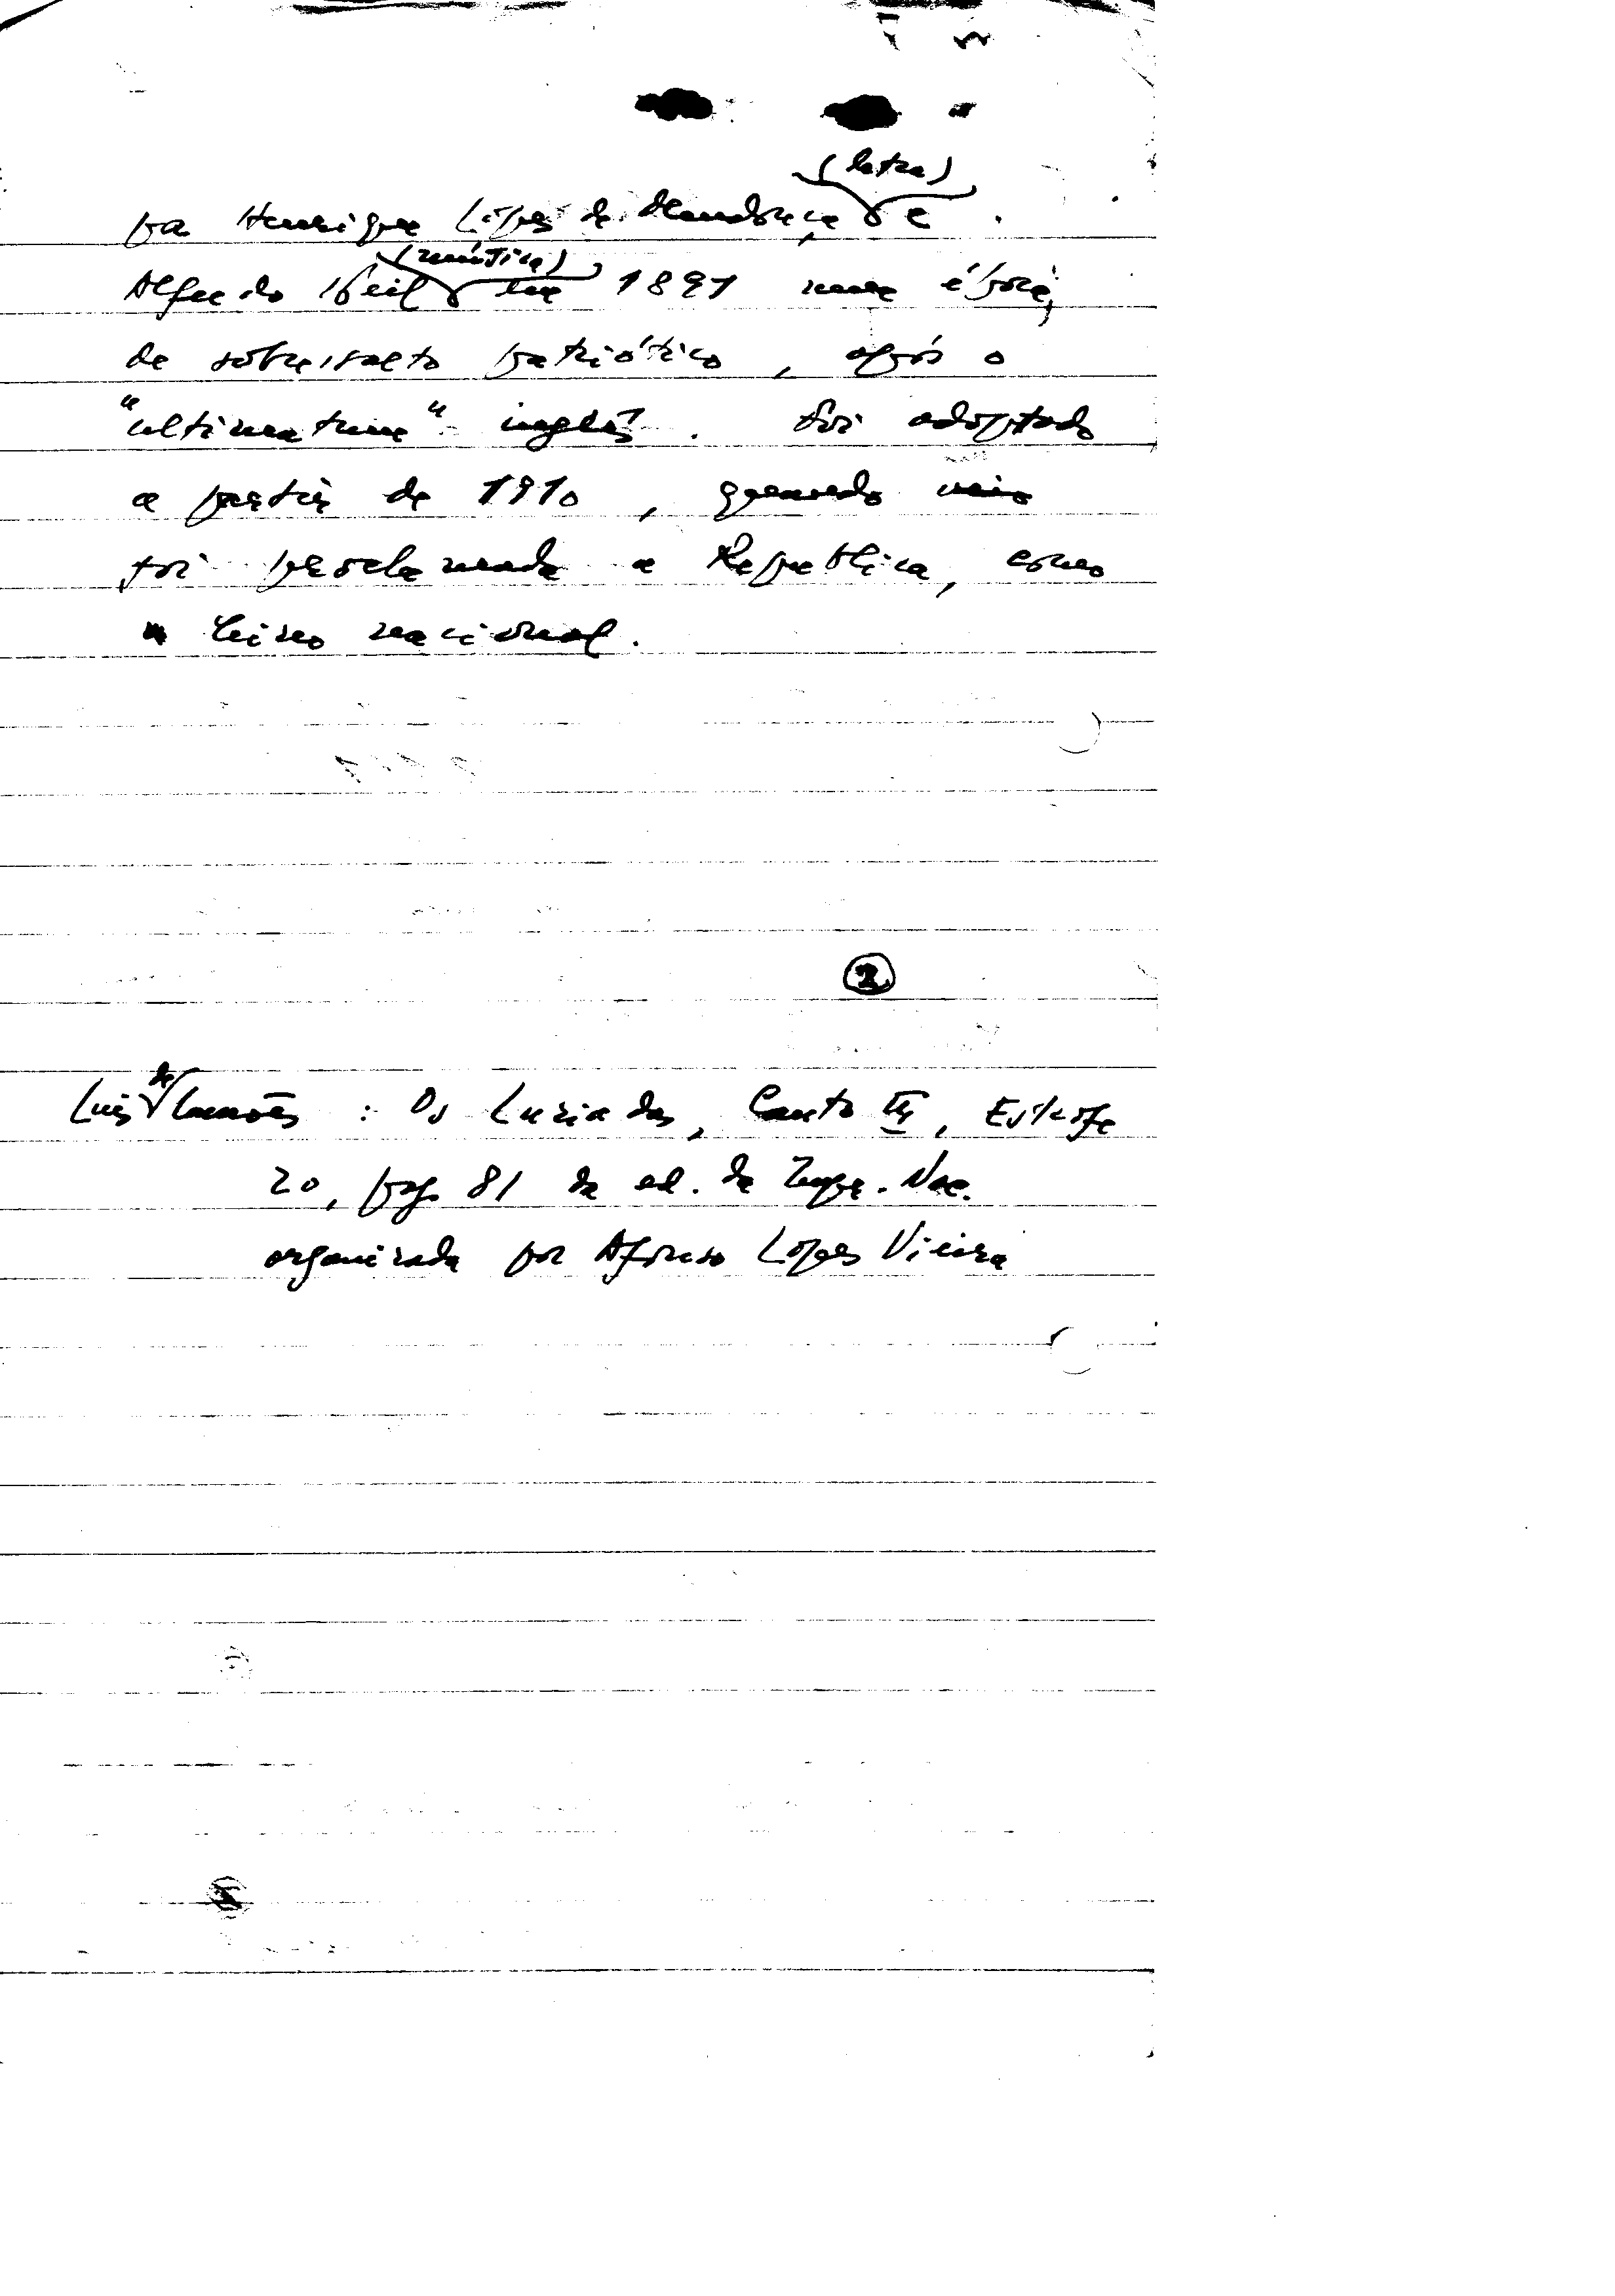 (letra)
por Henrique Lopes de Mendonça e
(música)
Alfredo Keil em 1891 numa época,
de sobressalto patriótico, após o
"ultimatum" inglês. Foi adoptado
a partir de 1910, quando
foi proclamada a Republica, como
hino nacional.
2
de
Luis Camões : Os Lusiadas, Canto III, Estrofe
20, pag. 81 da ed. da Impr. Nac.
organizada por Afonso Lopes Vieira